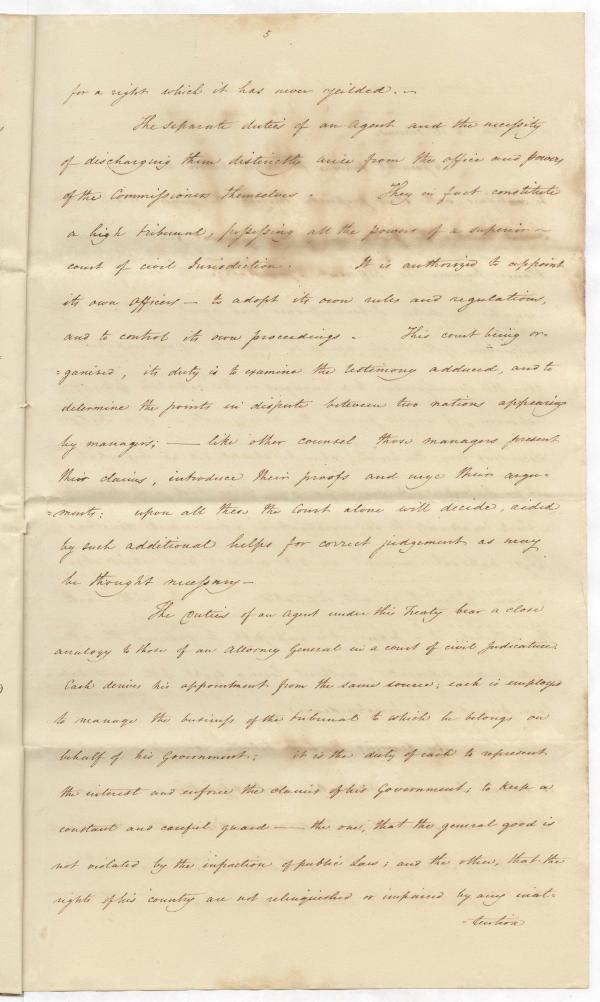 5
for a right which it has never yeilded. —
The separate duties of an Agent and the necessity
of discharging them distinctly arise from the office and powers
of the Commissioners themselves. They in fact constitute
a high tribunal, possessing all the powers of a superior —
court of civil Jurisdiction. It is authorized to appoint
its own officers — to adopt its own rules and regulations,
and to control its own proceedings. This court being or-
=ganized, its duty is to examine the testimony adduced, and to
determine the points in dispute between two nations appearing
by managers; — like other counsel those managers present
their claims, introduce their proofs and urge their argu-
=ments: upon all these the Court alone will decide, aided
by such additional helps for correct judgement as may
be thought necessary —
The Duties of an Agent under this Treaty bear a close
analogy to those of an Attorney General in a court of civil Judicature.
Each derives his appointment from the same source; each is employed
to manage the business of the tribunal to which he belongs on
behalf of his Government; it is the duty of each to represent
the interest and enforce the claims of his Government; to keep a
constant and careful guard — the one, that the general good is
not violated by the infraction of public Law; and the other, that the
rights of his country are not relinquished or impaired by any inat-
-tention